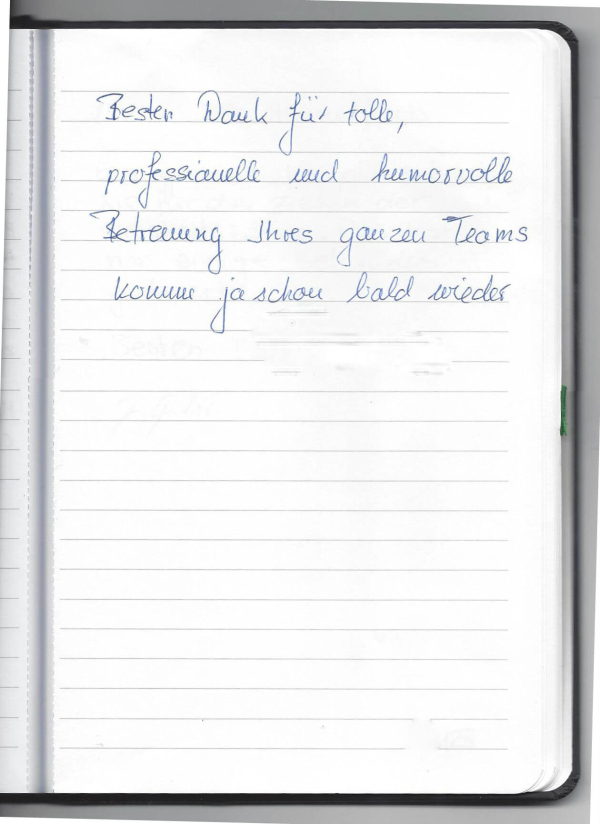 Bester Dank für tolle,
professionelle und humorvolle
Betreuung Ihres ganzen Teams
komme ja schon bald wieder